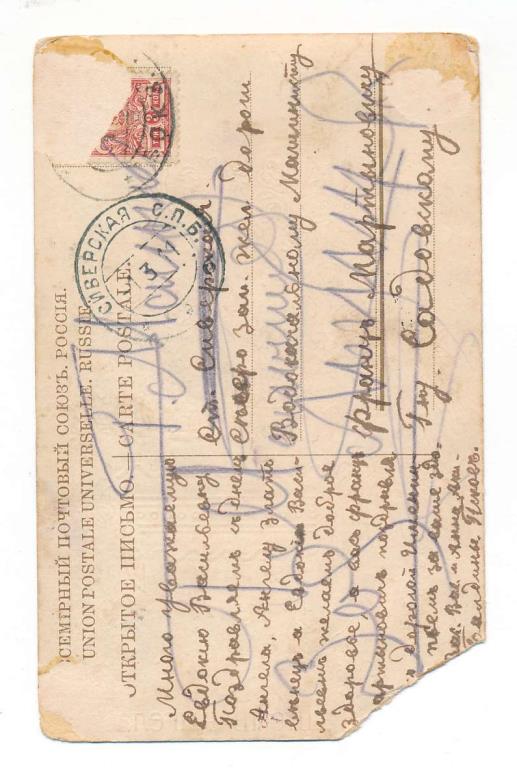 СЕМІРНЫЙ ПОЧТОВЫЙ СОЮЗЪ. РОССІЯ.
UNION POSTALE UNIVERSELLE. RUSSIE
ОТКРЫТОЕ ПИСЬМО.—CARTE POSTALE.
СИВЕРСКАЯ С.П.Б.
3
Много уважаемую
Евдокію Васильевну
Поздравляемъ съ днемъ
Ангела, Ангелу злать
вѣнецъ а Евдокіи Васи
льевне желаемъ доброе
здоровое а васъ францъ
артыновичъ поздравля
съ дорогой Именин
поемъ за ваше здо-
Ст. Сиверской
Северо Зап. жел дороги
Водокачальному Машинисту
Францъ Мартыновичу
Гну. Садовскому